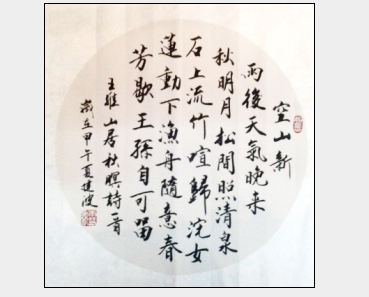 空山新
雨後天氣晚来
秋明月松間照清泉
石上流竹喧歸浣女
蓮動下漁舟隨意春
芳歇王孫自可留
王維山居秋暝詩一首
歲在甲午夏建波